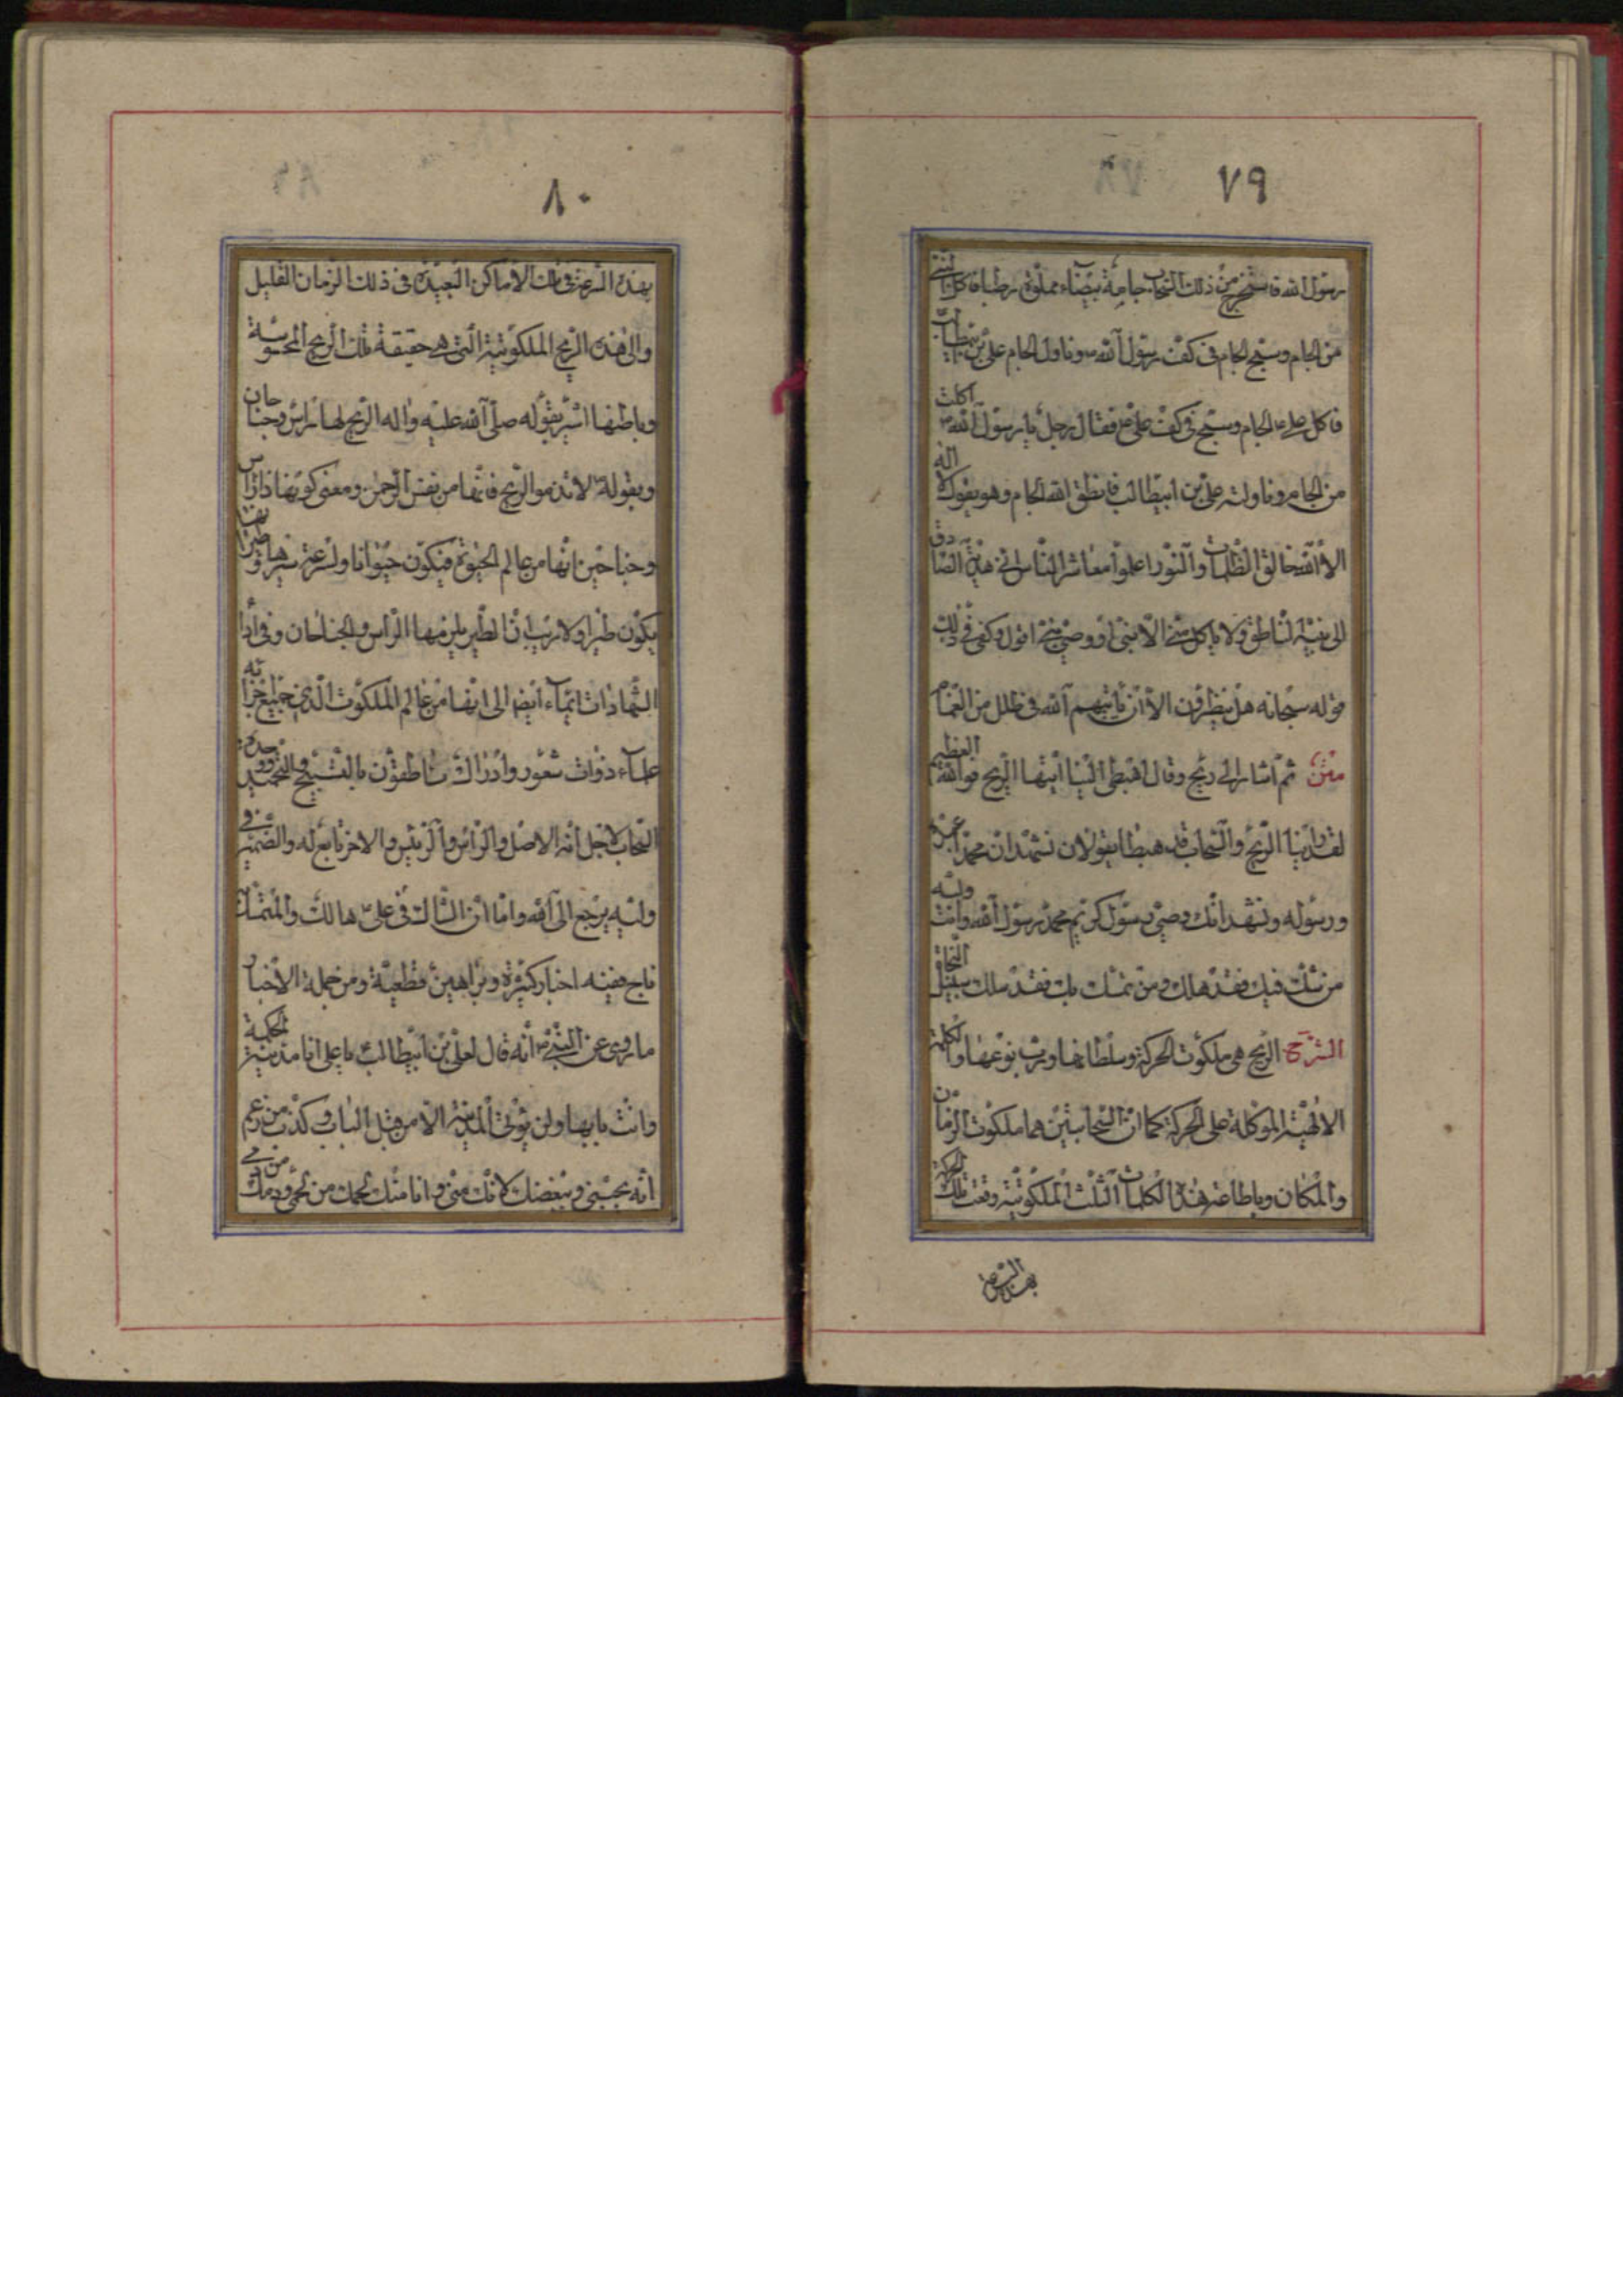 ٧٩
رسول الله فاستخرج من ذلك السحاب جامة بيضاء مملوة رطبا فاكل النبي
من الجام وسبح الجام في كف رسول الله ص وناول الجام علي بن ابيطالب
فاكل علي ع الجام وسبح في كف علي ع فقال رجل يا رسول الله ص اكلت
من الجام وناولته علي بن ابيطالب فانطق الله الجام وهو يقول لا اله
الا الله خالق الظلمات والنور اعلموا معاشر الناس اني هدية الصادق
الى نبيه الناطق ولا ياكل مني الا نبي او وصي نبي اقول وكفى في ذلك
قوله سبحانه هل ينظرون الا ان ياتيهم الله في ظلل من الغمام
متن ثم اشار الى ريح وقال اهبطي الينا ايتها الريح فوالله العظيم
لقد راينا الريح والسحاب قد هبطا يقولان نشهد ان محمدا عبده
ورسوله ونشهد انك وصي رسول كريم محمد رسول الله وانت وليه
من شك فيك فقد هلك ومن تمسك بك فقد سلك سبيل النجاة
الشرح الريح هي ملكوت الحركة وسلطانها ورب نوعها والكلمة
الالهية الموكلة على الحركة كما ان السحابتين هما ملكوت الزمان
والمكان وباطاعة هذه الكلمات الثلث الملكوتية وقعت تلك الحركة
بهذه السرعة
٨٠
بهذه السرعة في تلك الاماكن البعيدة في ذلك الزمان القليل
والى هذه الريح الملكوتية التي هي حقيقة تلك الريح المحسوسة
وباطنها اشير بقوله صلى الله عليه واله الريح لها راس وجناحان
وبقوله ص لا تذموا الريح فانها من نفس الرحمن ومعنى كونها ذا راس
وجناحين انها من عالم الحيوة فيكون حيوانا ولسرعة سيرها وطيرانها
يكون طيرا ولا ريب ان الطير يلزمها الراس والجناحان وفي اداء
الشهادات ايماء ايضا الى انها من عالم الملكوت الذي جميع اجزائه
علماء ذوات شعور وادراك ناطقون بالتسبيح والتحميد ووحدة
السحاب لاجل انه الاصل والراس والرئيس والاخر تابع له والضمير في
وليه يرجع الى الله واما ان الشاك في علي ع هالك والمتمسك
ناج ففيه اخبار كثيرة وبراهين قطعية ومن جملة الاخبار
ما روي عن النبي ص انه قال لعلي بن ابيطالب ع يا علي انا مدينة الحكمة
وانت بابها ولن يؤتى المدينة الا من قبل الباب وكذب من زعم
انه يحبني ويبغضك لانك مني وانا منك لحمك من لحمي ودمك من دمي